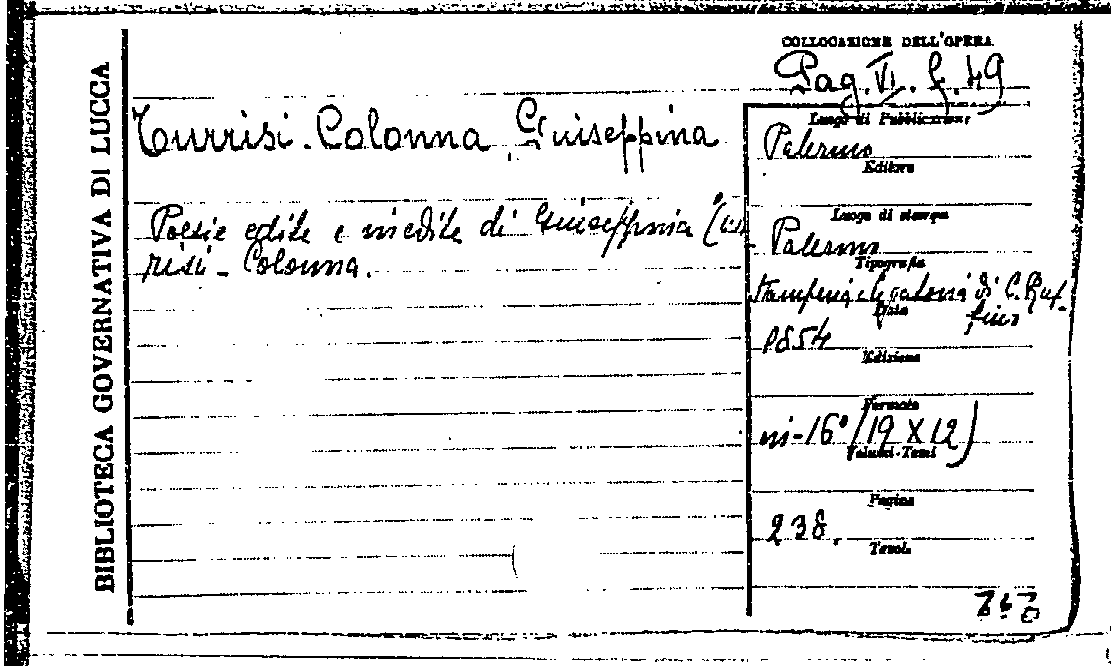 BIBLIOTECA GOVERNATIVA DI LUCCA
COLLOCAZIONE DELL'OPERA
Pag. VI. f. 49
Turrisi-Colonna, Giuseppina
Poesie edite e inedite di Giuseppina Tur-
risi-Colonna.
Luogo di Pubblicazione
Palermo
Editore
Luogo di stampa
Palermo
Tipografia
Stamperia e legatoria di C. Ruf-
fino
Data
1854
Edizione
Formato
in-16° (19 X 12)
Volumi-Tomi
Pagine
238.
Tavole